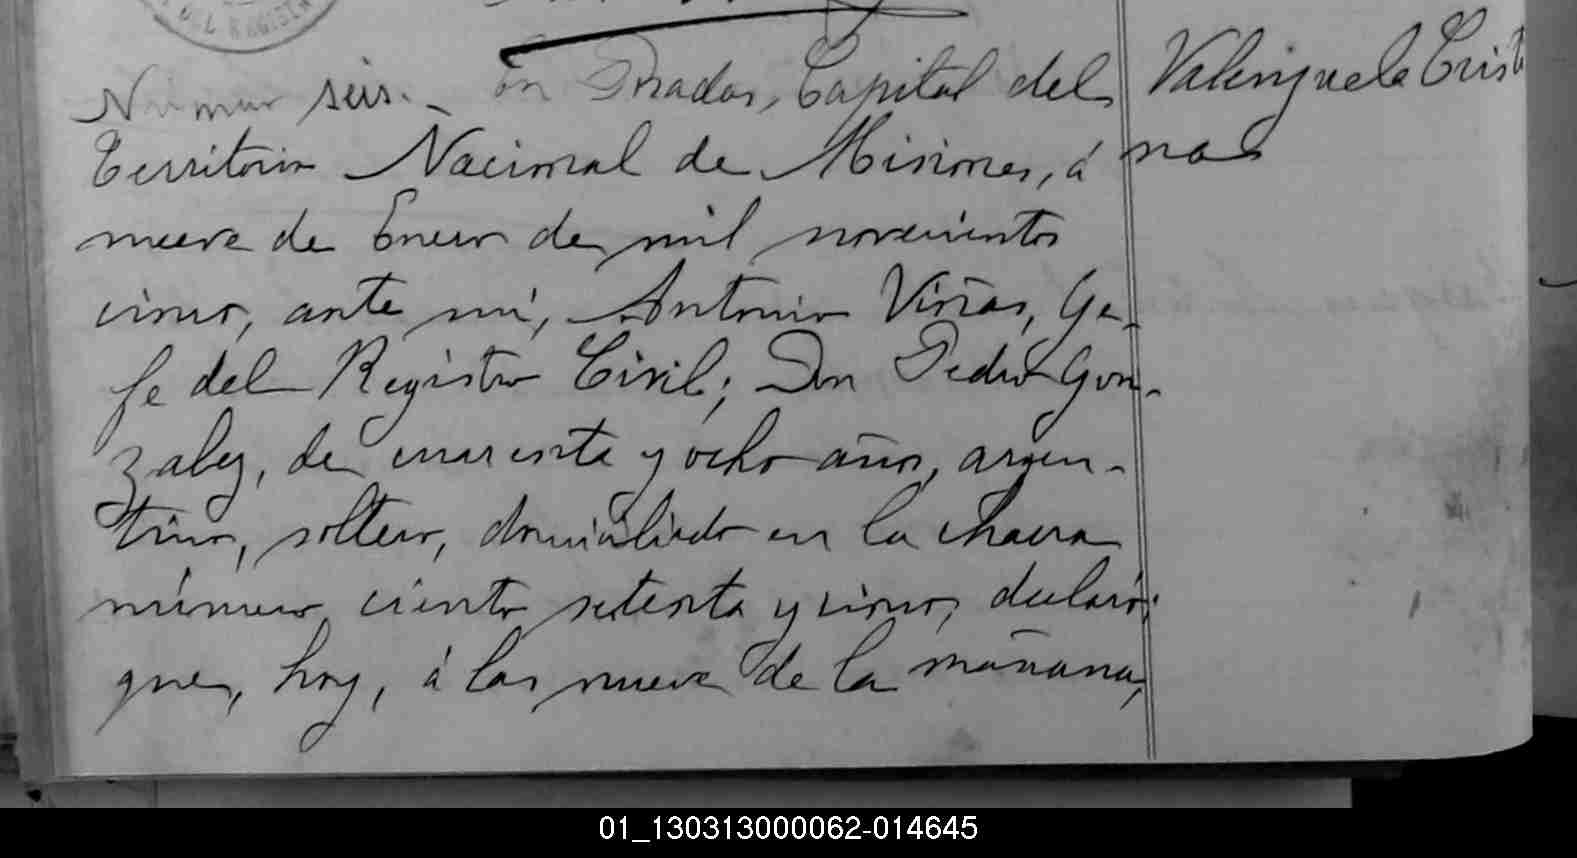 DEL REGISTR
Número seis. - En Posadas, Capital del
Territorio Nacional de Misiones, á
nueve de Enero de mil novecientos
cinco, ante mí, Antonio Viñas, Ge-
fe del Registro Civil; Don Pedro Gon-
zalez, de cuarenta y ocho años, argen-
tino, soltero, domiciliado en la chacra
número ciento setenta y cinco, declaró:
que, hoy, á las nueve de la mañana,
Valenzuela Crist
nas
01_130313000062-014645